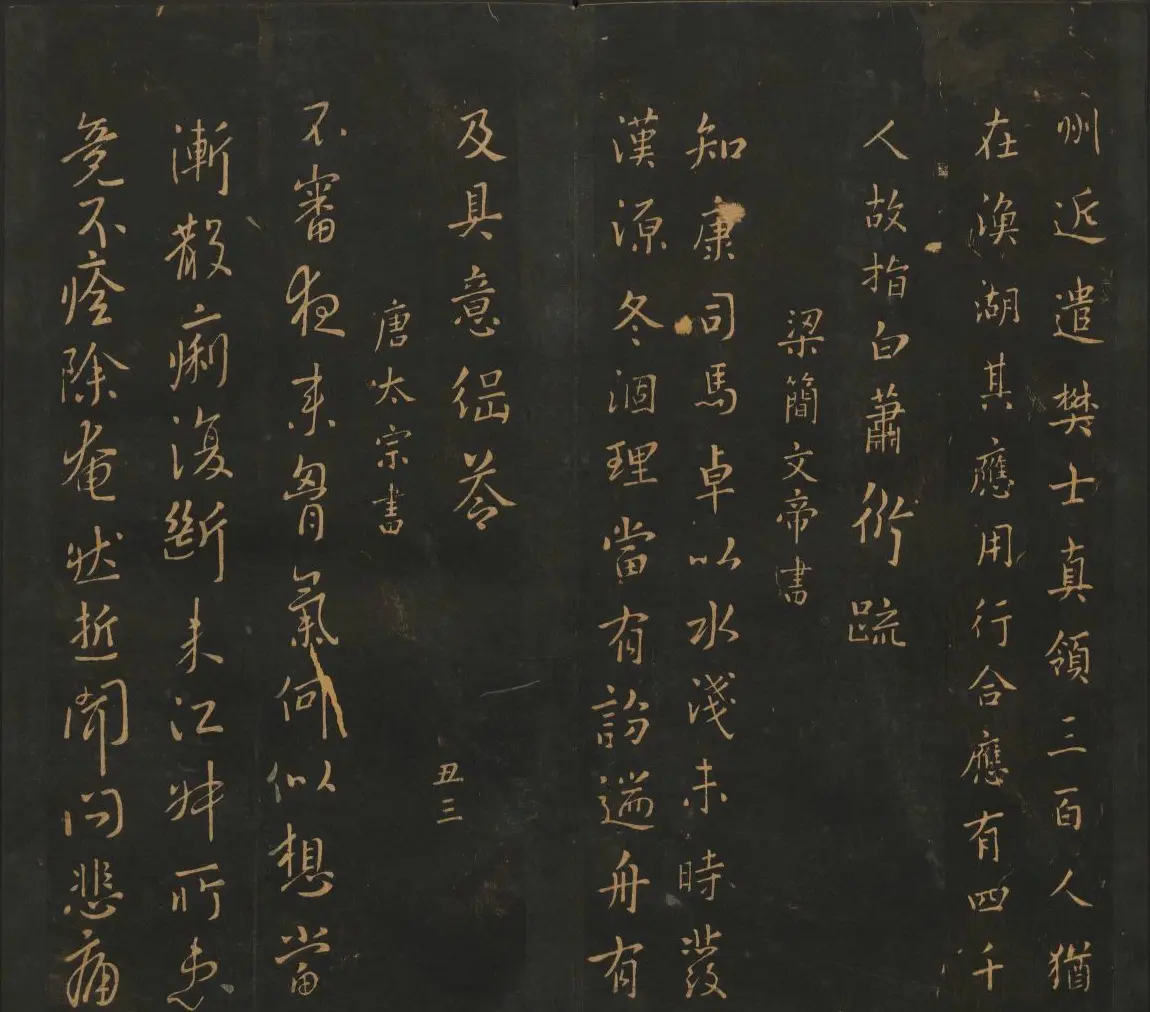 州近遣樊士真領三百人猶
在渙湖其應用行合應有四千
人故指白蕭衍疏
梁簡文帝書
知康司馬卓以水淺未時發
漢源冬涸理當有遄舟有
及具意答
丑三
唐太宗書
不審夜來胷氣何似想當
漸散痢復斷未江叔所患
竟不痊除奄然逝聞問悲痛